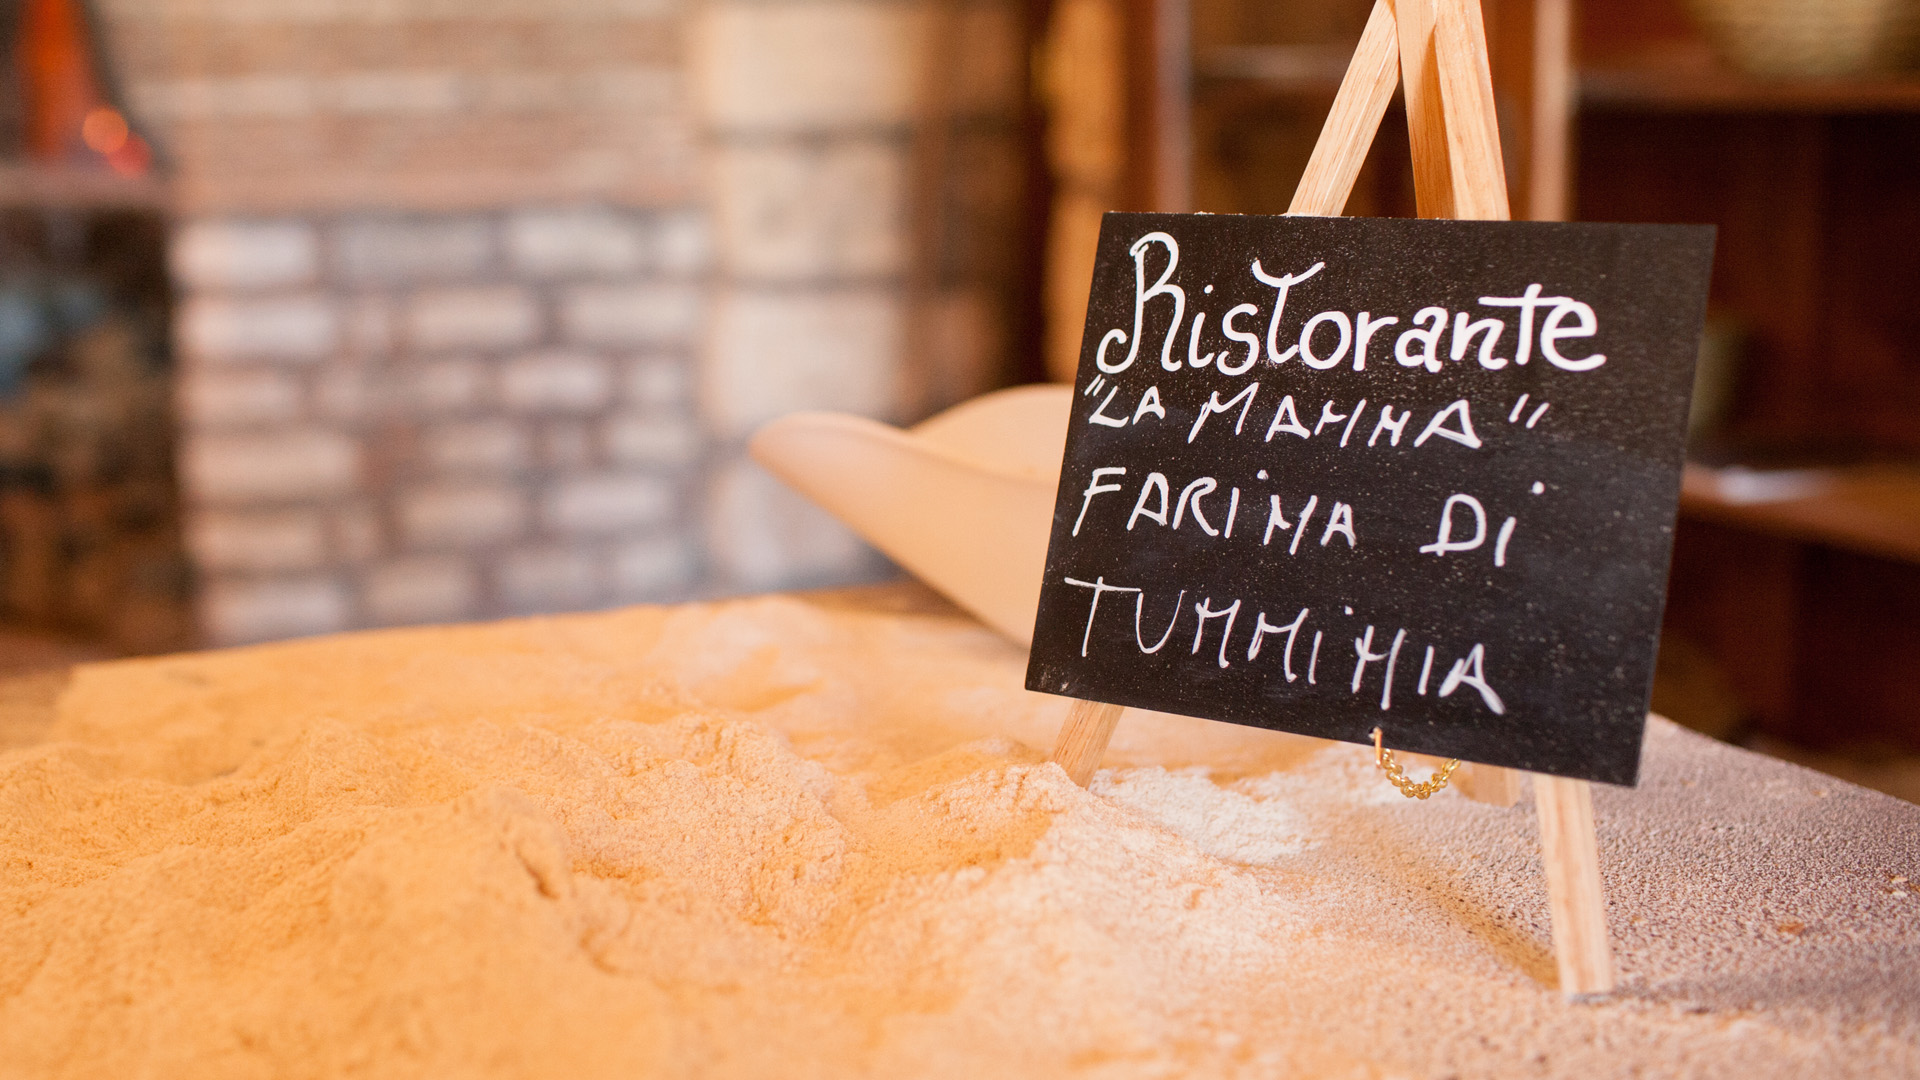 Ristorante
"LA MANNA"
FARiNA Di
TUMMiNIA